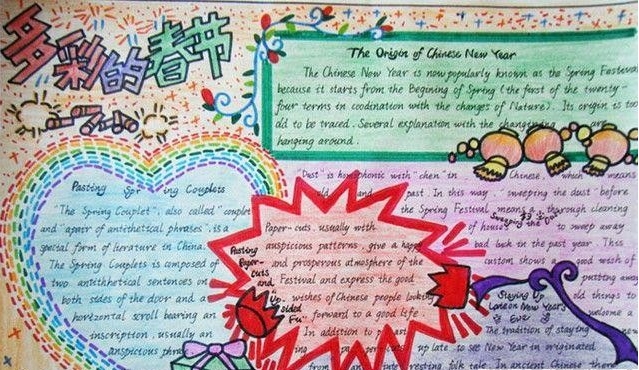 多彩的春节
The Origin of Chinese New Year
The Chinese New Year is now popularly known as the Spring Festival
because it starts from the Begining of Spring (the first of the twenty-
four terms in coodination with the changes of Nature). Its origin is too
old to be traced. Several explanation with the are
hanging around.
Pasting Spring Couplets
"The Spring Couplet", also called "couplet
and "apair of antithetical phrases", is a
special form of lierature in China.
The Spring Couplets is composed of
two antithetical sentences on
both sides of the door and a
horizontal scroll bearing an
inscription, usually an
anspicious phrase
Pasting
Paper-
cuts
and
"Up-
sided
Fu"
Paper-cuts, usually with
auspicious patterns, give a happy
and prosperous atmosphere of the
Festival and express the good
wishes of Chinese people looking
forward to a good life.
In addition to past
ing paper-cuts
"Dust" is homophonic with "chen" in Chinese, which means
old and past. In this way, "sweeping the dust" before
the Spring Festival means a thorough cleaning
of houses to sweep away
bad luck in the past year. This
custom shows a good wish of
putting away
old things to
welcome a
Sweeping the Dust
扫尘
Staying Up
Late on New Year's
Eve
The tradition of staying
up late to see New Year in originated
from an interesting folk tale. In ancient Chinese there